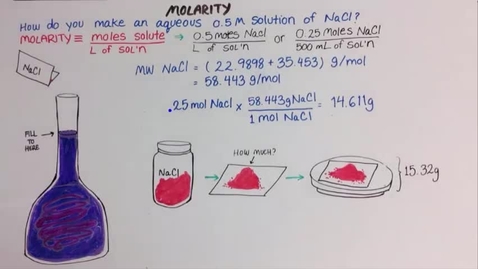 MOLARITY
How do you make an aqueous 0.5 M solution of NaCl?
MOLARITY ≡ moles solute / L of sol'n → 0.5 moles NaCl / L of sol'n or 0.25 moles NaCl / 500 mL of sol'n
NaCl
MW NaCl = (22.9898 + 35.453) g/mol
= 58.443 g/mol
.25 mol NaCl x 58.443g NaCl / 1 mol NaCl = 14.611g
FILL TO HERE
HOW MUCH?
NaCl
15.32g